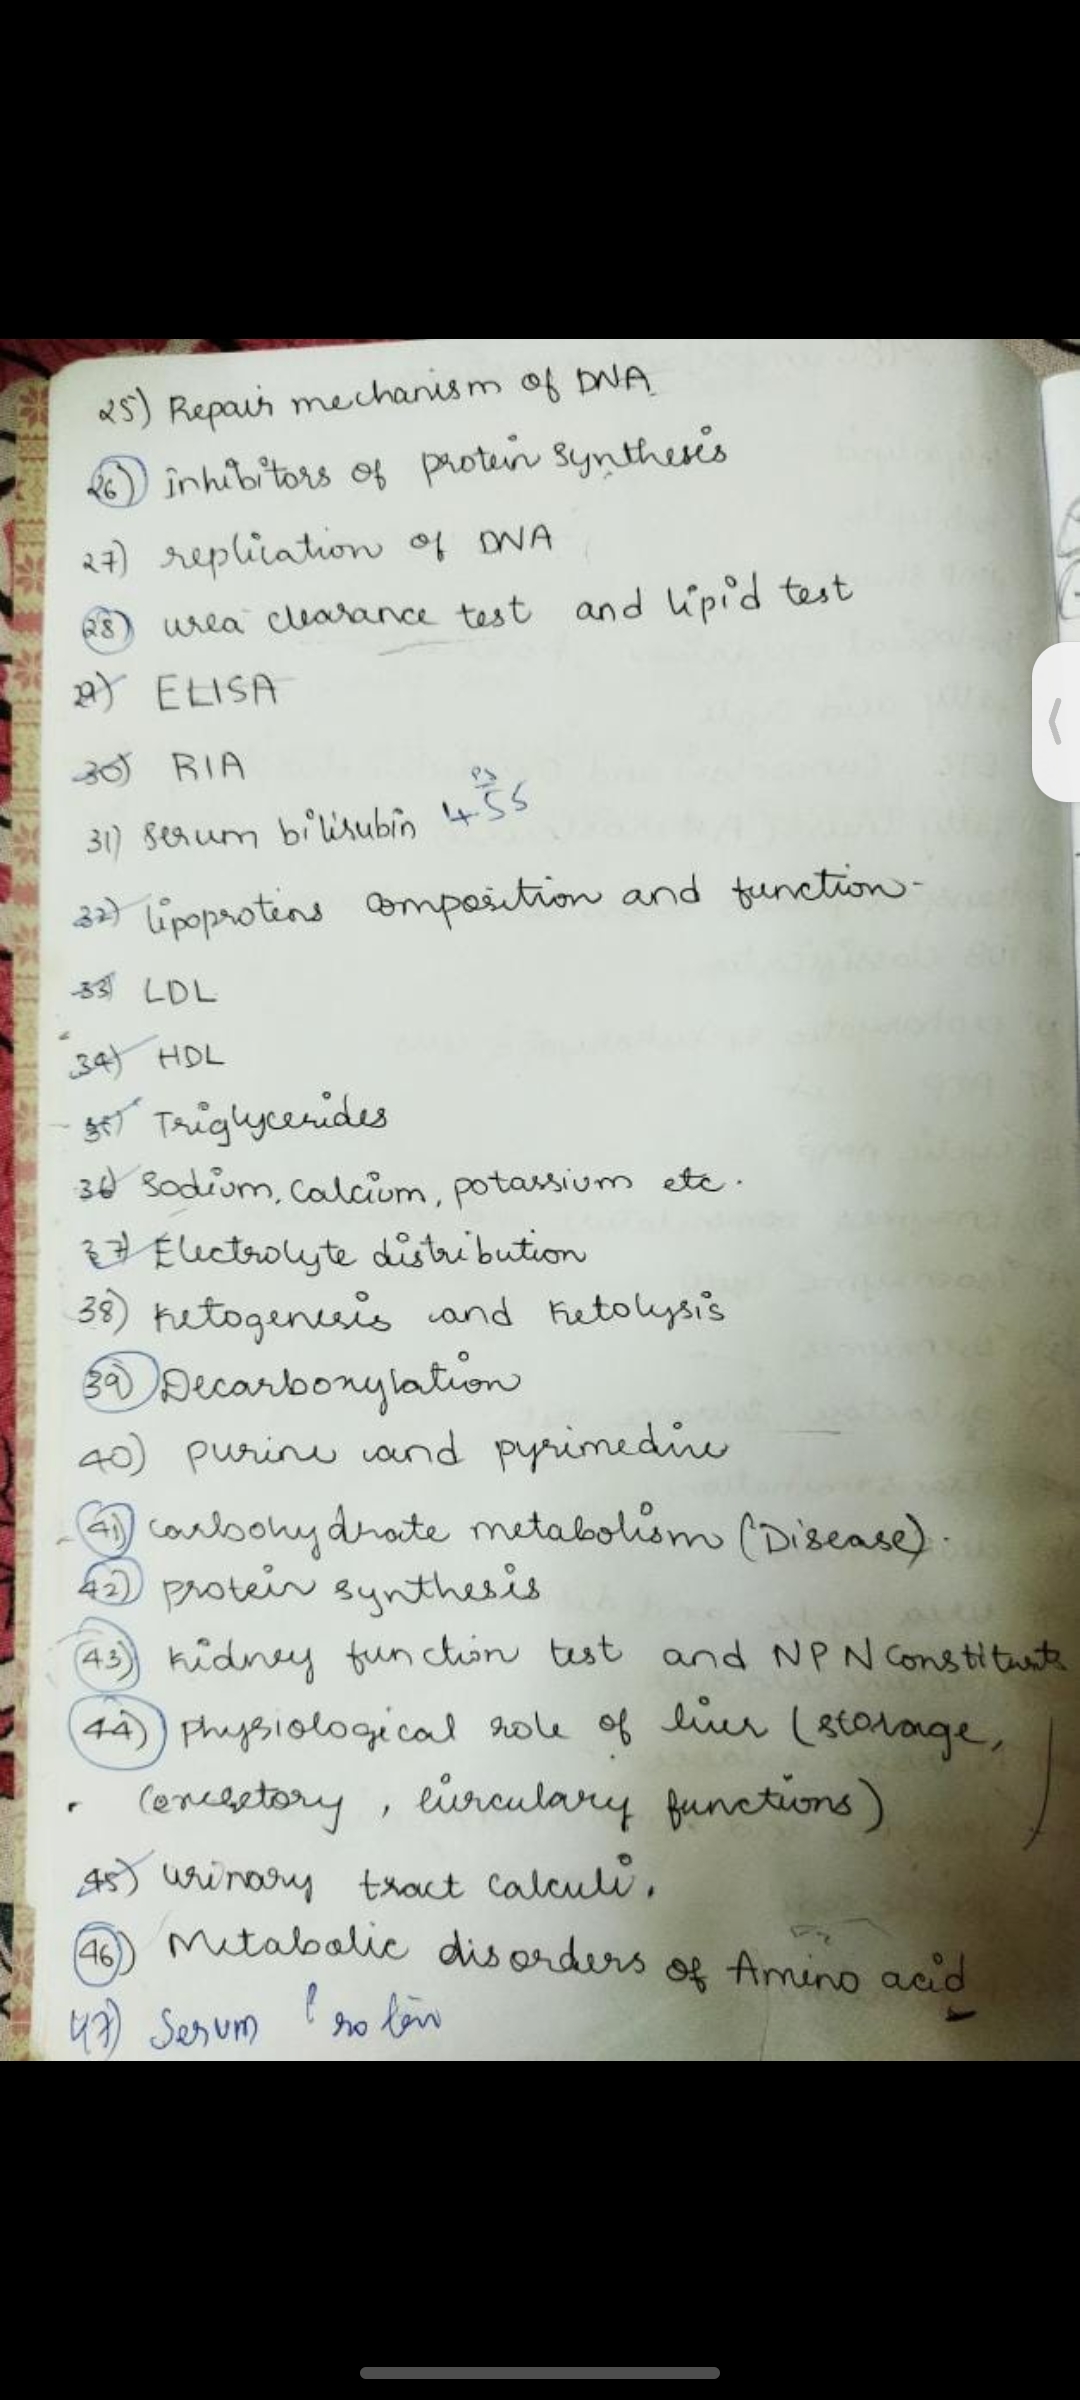 25) Repair mechanism of DNA
26) inhibitors of protein synthesis
27) replication of DNA
28) urea clearance test and lipid test
29) ELISA
30) RIA
31) serum bilirubin 455
32) lipoproteins composition and function-
33) LDL
34) HDL
35) Triglycerides
36) Sodium, Calcium, potassium etc.
37) Electrolyte distribution
38) Ketogenesis and Ketolysis
39) Decarboxylation
40) purine and pyrimedine
41) carbohydrate metabolism (Disease).
42) protein synthesis
43) kidney function test and NPN Constituents
44) physiological role of liver (storage,
(excretory, circulary functions)
45) urinary tract calculi.
46) Metabolic disorders of Amino acid
47) Serum Protein